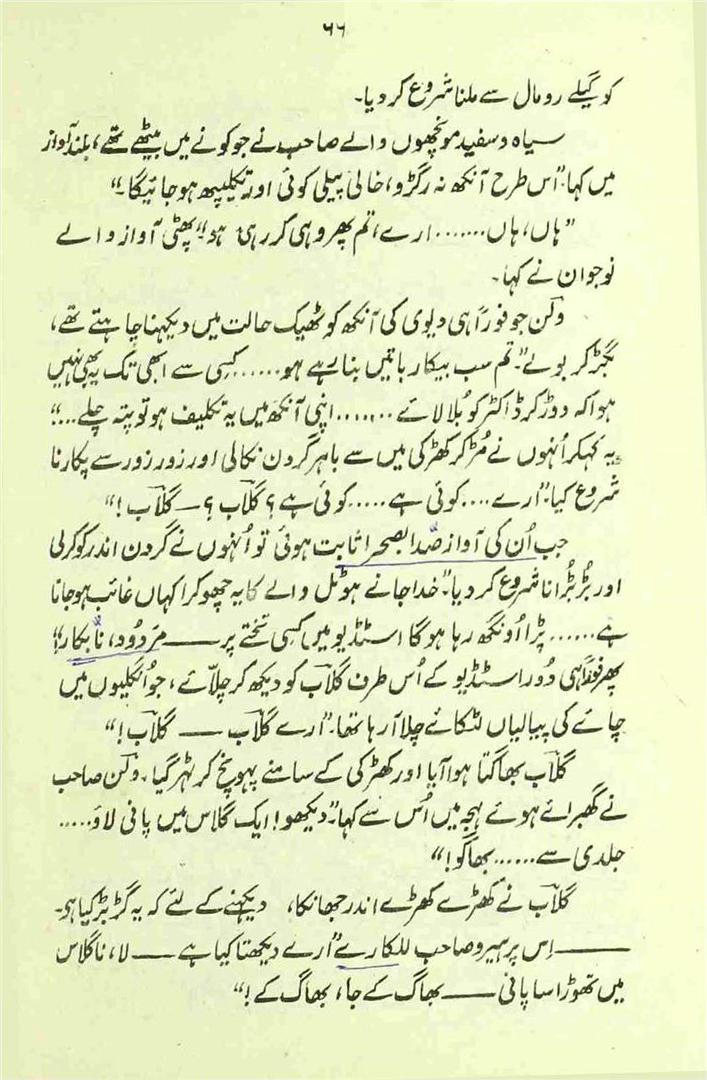 ۶۶
کو گیلے رومال سے ملنا شروع کر دیا۔
سیاہ و سفید مونچھوں والے صاحب نے جو کونے میں بیٹھے تھے، بلند آواز
میں کہا۔ "اس طرح آنکھ نہ رگڑو، خالی پیلی کوئی اور تکلیپھ ہو جائیگا۔"
"ہاں، ہاں....... ارے، تم پھر وہی کر رہی ہو" پھٹی آواز والے
نوجوان نے کہا۔
وکن جو فوراً ہی دیوی کی آنکھ کو ٹھیک حالت میں دیکھنا چاہتے تھے،
بگڑ کر بولے۔ "تم سب بیکار باتیں بنا رہے ہو...... کسی سے ابھی تک یہ بھی نہیں
ہوا کہ دوڑ کر ڈاکٹر کو بُلا لائے ....... اپنی آنکھ میں یہ تکلیف ہو تو پتہ چلے...."
یہ کہکر اُنہوں نے مُڑ کر کھڑکی میں سے باہر گردن نکالی اور زور زور سے پکارنا
شروع کیا۔ "ارے .... کوئی ہے ..... کوئی ہے؟ گلاب؟ — گلاب!"
جب اُن کی آواز صدا بصحرا ثابت ہوئی تو اُنہوں نے گردن اندر کو کر لی
اور بُڑبُڑانا شروع کر دیا۔ "خدا جانے ہوٹل والے کا یہ چھوکرا کہاں غائب ہو جاتا
ہے...... پڑا اُونگھ رہا ہوگا اسٹڈیو میں کسی تختے پر —— مردُود، نابکار!"
پھر فوراً ہی دُور اسٹڈیو کے اُس طرف گلاب کو دیکھ کر چلّائے، جو اُنگلیوں میں
چائے کی پیالیاں لٹکائے چلا آ رہا تھا۔ "ارے گلاب —— گلاب!"
گلاب بھاگتا ہوا آیا اور کھڑکی کے سامنے پہونچ کر ٹہر گیا۔ وکن صاحب
نے گھبرائے ہوئے لہجہ میں اُس سے کہا۔ "دیکھو! ایک گلاس میں پانی لاؤ.....
جلدی سے...... بھاگو!"
گلاب نے کھڑے کھڑے اندر جھانکا، دیکھنے کے لئے کہ یہ گڑبڑ کیا ہے۔
—— اِس پر ہیرو صاحب للکارے "ارے دیکھتا کیا ہے —— لا، نا گلاس
میں تھوڑا سا پانی —— بھاگ کے جا، بھاگ کے!"